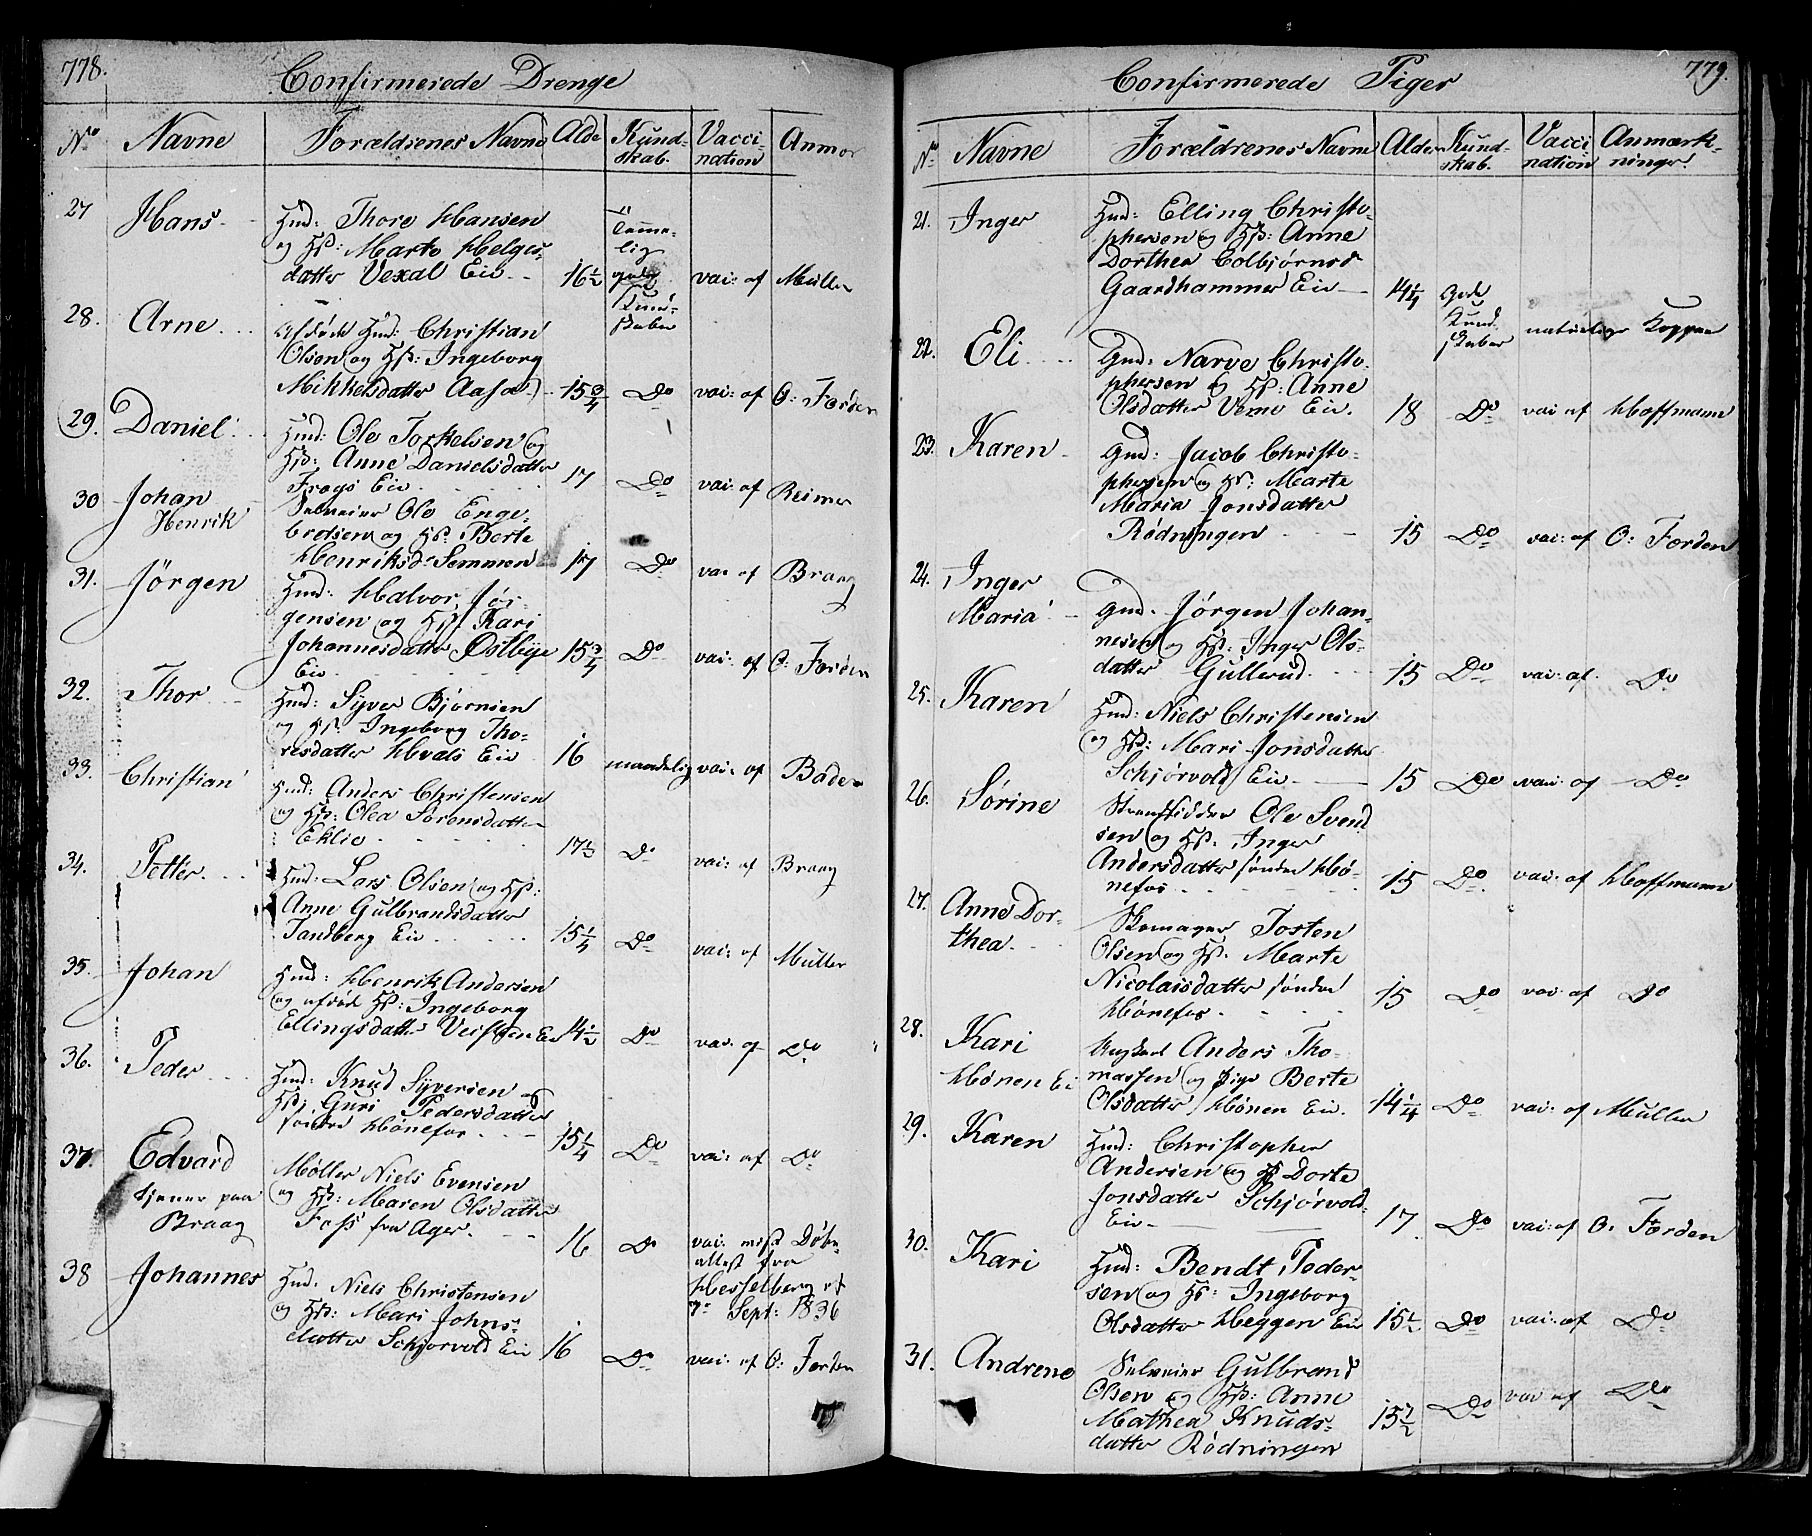 778.
Confirmerede Drenge
No Navne Forældrenes Navne Alde Kund-skab. Vacci-nation Anmær
27 Hans Huusmd: Thore Hansen
og Hst: Marte Helges-
datter Vexal Eie 16½ Temme-lig gode Kund-skaber vac: af Müller
28. Arne Afdøde Hmd: Christian
Olsen og Hst: Ingeborg
Mikkelsdatter Aasa 15¾ Do vac: af O: Førden
29. Daniel Hmd: Ole Torkelsen og
Hst: Anne Danielsdatter
Frogs Eie 17 Do vac: af Reimer
30 Johan
Henrik Selveier Ole Enge-
bretsen og Hst. Berte
Henriksd Semmen 17 Do vac af Braag
31. Jörgen Hmd: Halvor Jör-
gensen og Hst Kari
Johannesdatter Østbye
Eie 15¾ Do vac: af O: Førden
32. Thor Hmd: Syver Bjørnsen
og Hst. Ingeborg Tho-
resdatter Hvals Eie 16 maadelig vac: af Bader
33. Christian Hmd: Anders Christensen
og Hst: Olea Sørensdatter
Eklie 17½ Do vac: af Braag
34. Petter Hmd: Lars Olsen og Hst:
Anne Gulbrandsdatter
Tandberg Eie 15¼ Do vac: af Müller
35. Johan Hmd: Henrik Andersen
og afdød Hst: Ingeborg
Ellingsdatter Vesteren Eie 14½ Do vac: af Do
36. Peder Hmd: Knud Syversen og
Hst: Guri Pedersdatter
søndre Hönefos 15¼ Do vac: af Do
37. Edvard
tjener paa
Braag Møller Niels Evensen
og Hst: Maren Olsdatter
Foss fra Ager. 16 Do vac: mist Döbe-
attest fra
Hesselberg af
7de Sept: 1836
38 Johannes Hmd: Niels Christensen
og Hst: Mari Johns-
datter Schjorvold Eie 16 Do vac: af O: Førden
779.
Confirmerede Piger
No Navne Forældrenes Navne Alder Kund-skab. Vacci-nation Anmærk-ninger.
21. Inger Hmd: Elling Christo-
phersen og Hst: Anne
Dorthea Colbjørnsd
Gaardhammer Eie 14¼ Gode Kund-skaber naturlige Kopper
22. Eli Gmd: Narve Christo-
phersen og Hst: Anne
Olsdatter Veme Eie. 18 Do vac af Hoffmann
23. Karen Gmd: Jacob Christo-
phersen og Hst: Marte
Maria Jonsdatter
Rødningen 15 Do vac: af O: Førden
24. Inger
Maria Gmd. Jörgen Johan-
nesen og Hst. Inger Ols-
datter Gullerud 15 Do vac: af. Do
25. Karen Hmd: Niels Christensen
og Hst: Mari Jonsdatter
Schjörvold Eie 15 Do vac: af Do
26. Sörine Strandsidder Ole Svend
sen og Hst. Inger
Andersdatter søndre Hö-
nefos 15 Do vac: af Hoffmann
27. Anne Dor-
thea Skomager Tosten
Olsen og Hst. Marte
Nicolaisdatter søndre
Hönefos 15 Do vac: af Do
28. Kari
Hönen Ei Ungkarl Anders Tho-
massen og Pige Berte
Olsdatter Hönen Eie. 14¼ Do vac: af Müller
29. Karen Hmd: Christopher
Andersen og Hst Dorte
Jonsdatter Schjørvold
Eie 17. Do vac: af O. Førden
30. Kari Hmd: Bendt Peder-
sen og Hst: Ingeborg
Olsdatter Heggen Eie 15½ Do vac: af Do
31. Andrene Selveier Gulbrand
Olsen og Hst: Anne
Mathea Knuds-
datter Rödningen 15½ Do vac af Do